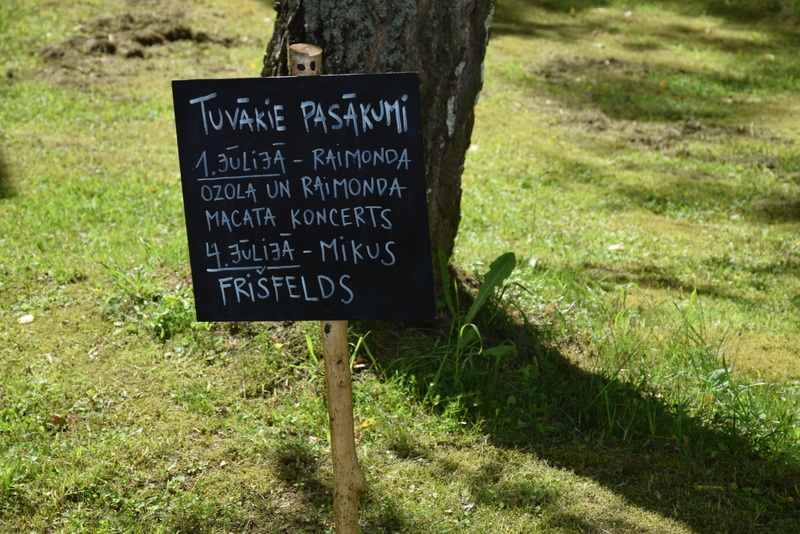 TUVĀKIE PASĀKUMI
1. JŪLIJĀ - RAIMONDA
OZOLA UN RAIMONDA
MACATA KONCERTS
4. JŪLIJĀ - MIKUS
FRIŠFELDS